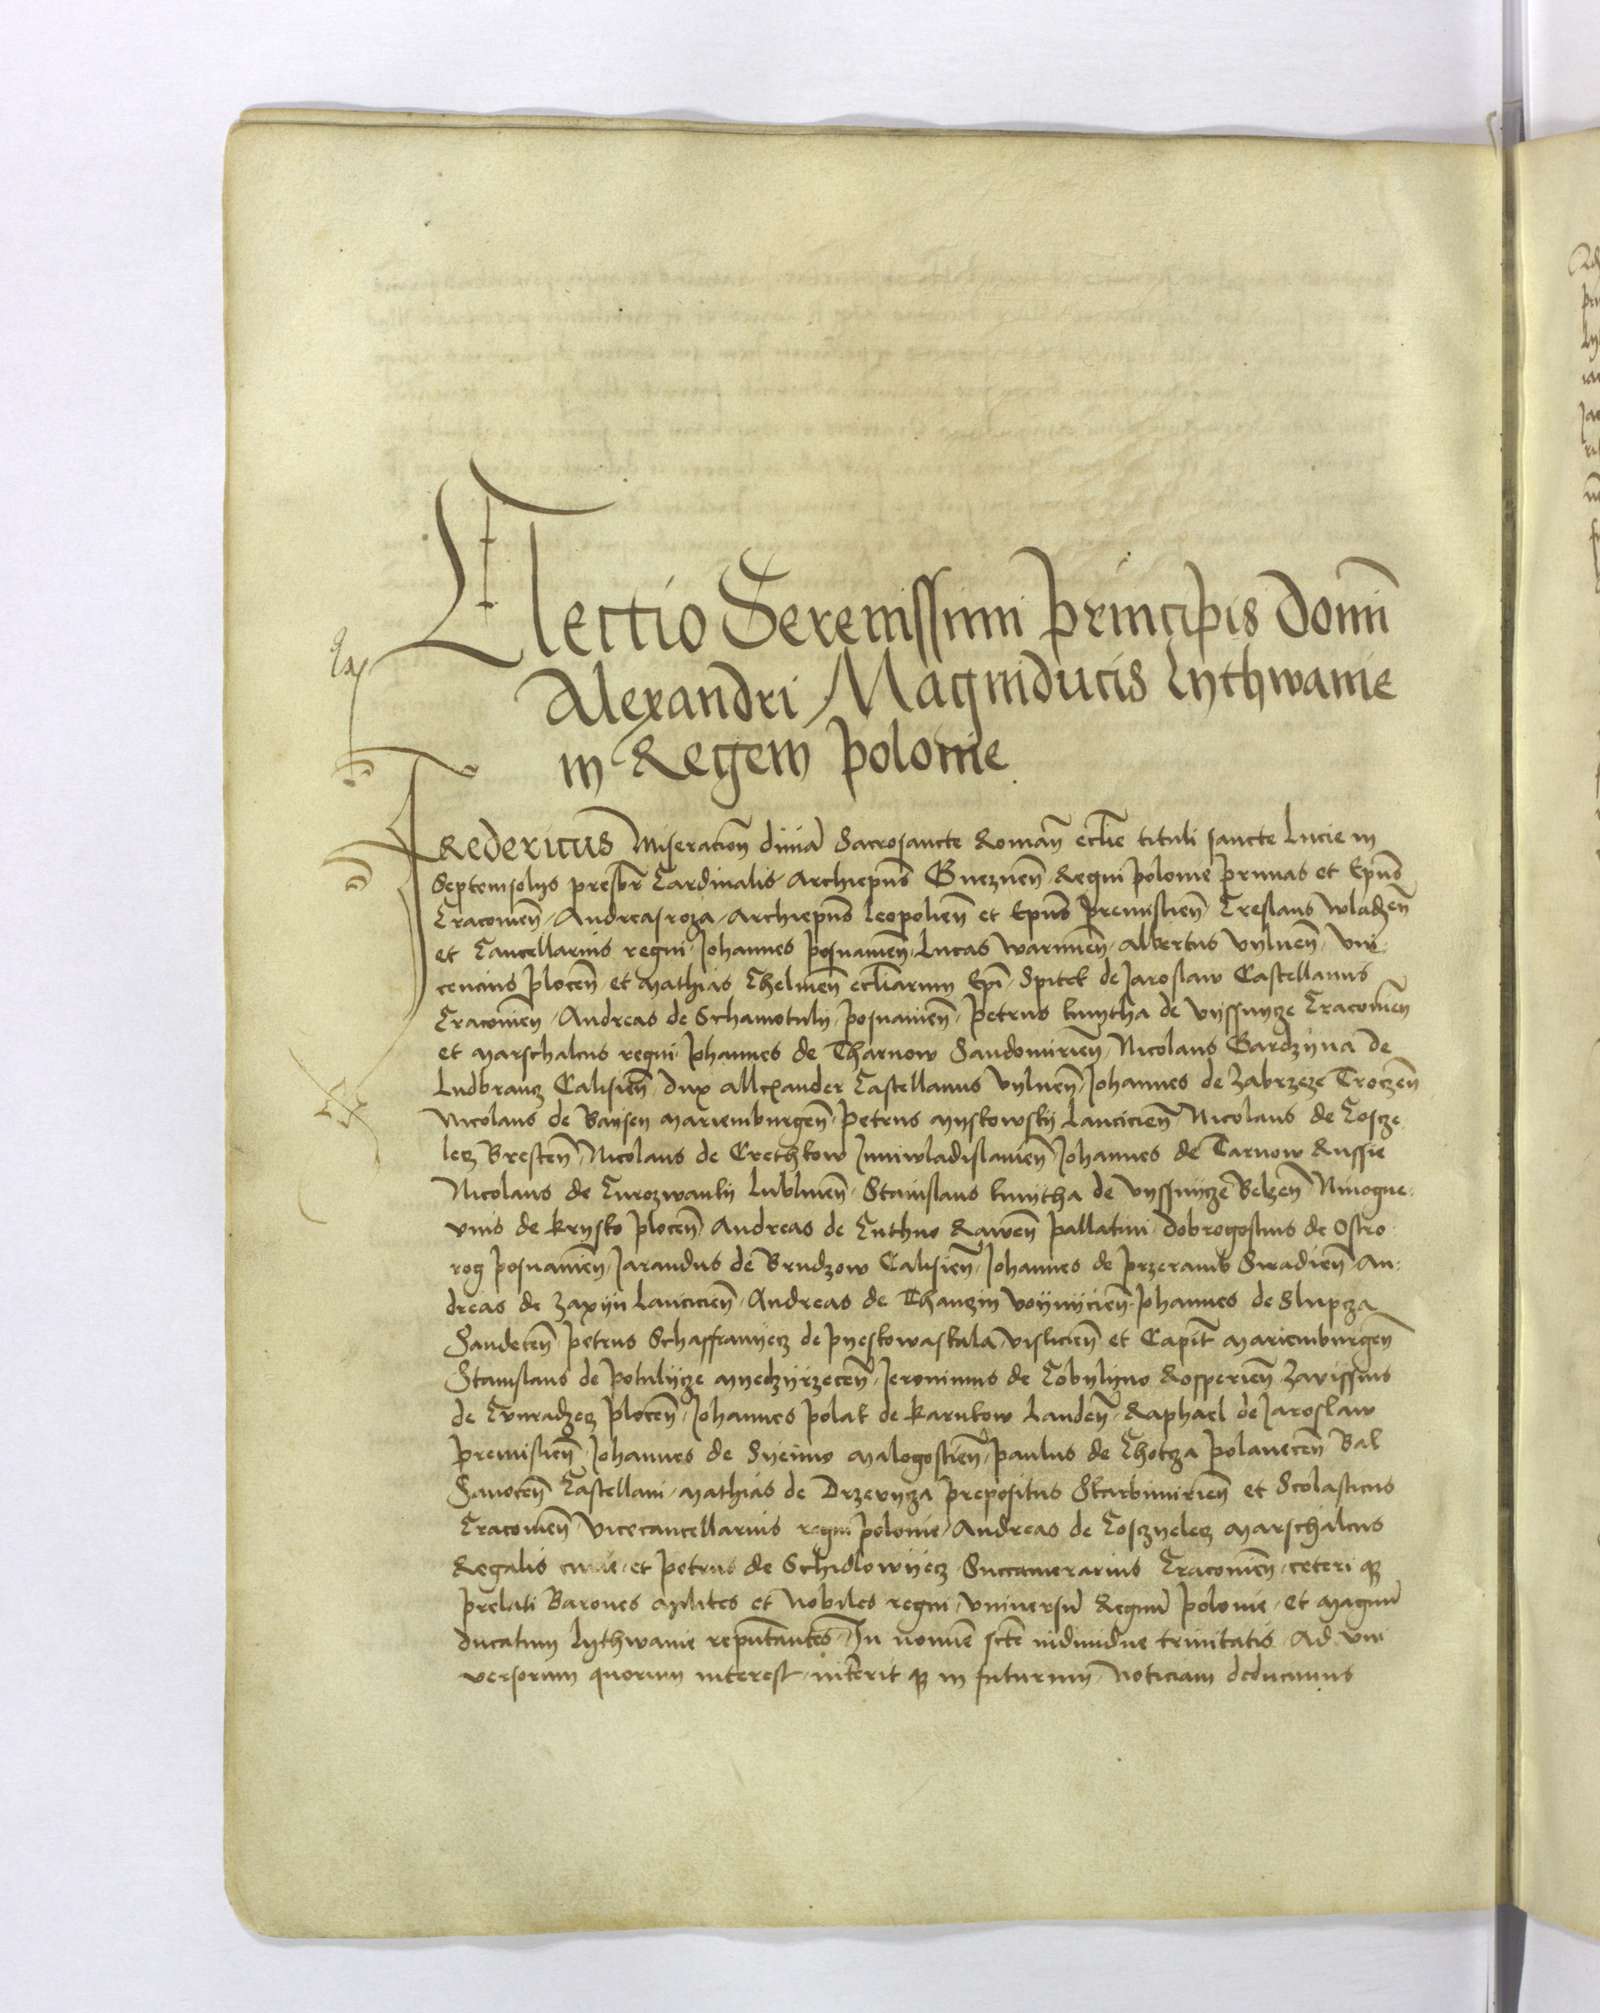 Electio Serenissimi principis Domi
Alexandri Magniducis Lythwanie
in Regem polonie
Fredericus Miseracion̄ diuiā Sacrosancte Roman̄ eccl̄ie tituli sancte Lucie in
Septemsolys presbr̄ Cardinalis Archiepūs Gneznen̄ Regni polonie primas et Ep̄us
Cracouien̄ Andreas roza Archiepūs leopolien̄ et Ep̄us premislien̄ Creslaus wladzen̄
et Cancellarius regni Johannes posnanien̄ Lucas warmien̄ Albertus vylnen̄ vin
cencius plocen̄ et Mathias Chelmen̄ eccl̄iarum Ep̄i Spitek de Jaroslaw Castellanus
Cracouien̄ Andreas de Schamotuly posnanien̄ petrus kmytha de vyssnycze Cracouien̄
et Marschalcus regni Johannes de Tharnow Sandomirien̄ Nicolaus Gardzyna de
Ludbrancz Calisien̄ dux allexander Castellanus vylnen̄ Johannes de zabrzeze Troczen̄
Nicolaus de Baysen Mariemburgen̄ petrus Myskowsky Lancicien̄ Nicolaus de Cosczye
lecz Bresten̄ Nicolaus de Crethkow Juniwladislauien̄ Johannes de Tarnow Russie
Nicolaus de Curozwanky Lublinen̄ Stanislaus kmytha de vyssnycze Belzen̄ Ninogne
vius de krysko plocen̄ Andreas de Cuthno Rawen̄ pallatini dobrogostius de Ostro
rog posnanien̄ Jarandus de Brudzow Calisien̄ Johannes de przeramb Siradien̄ An
dreas de zaxyn Lancicien̄ Andreas de Thanczin voynicien̄ Johannes de Slupcza
Sandecen̄ petrus Schaffranyecz de pyeskowaskala vislicien̄ et Capit̄ Mariemburgen̄
Stanislaus de potulycze Myedzyrzecen̄ Jeronimus de Cobylyno Rosperien̄ zavissius
de plocen̄ Johannes polak de karnkow Landen̄ Raphael de Jaroslaw
premislien̄ Johannes de Syenno Malogostien̄ paulus de Chotcza polanecen̄ Bal
Sanocen̄ Castellani Mathias de Drzevycza prepositus Skarbimirien̄ et Scolasticus
Cracouien̄ vicecancellarius regni polonie Andreas de Cosczyelecz Marschalcus
Regalis curie et petrus de Schidlowyecz Succamerarius Cracouien̄ ceteri qȝ
prelati Barones Milites et Nobiles regni vniuersū Regnū polonie et Magnū
ducatum lythwanie reputantes In nomīe sctē indiuidue trinitatis Ad vni
versorum quorum interest interit qȝ in futurum Noticiam deducimus